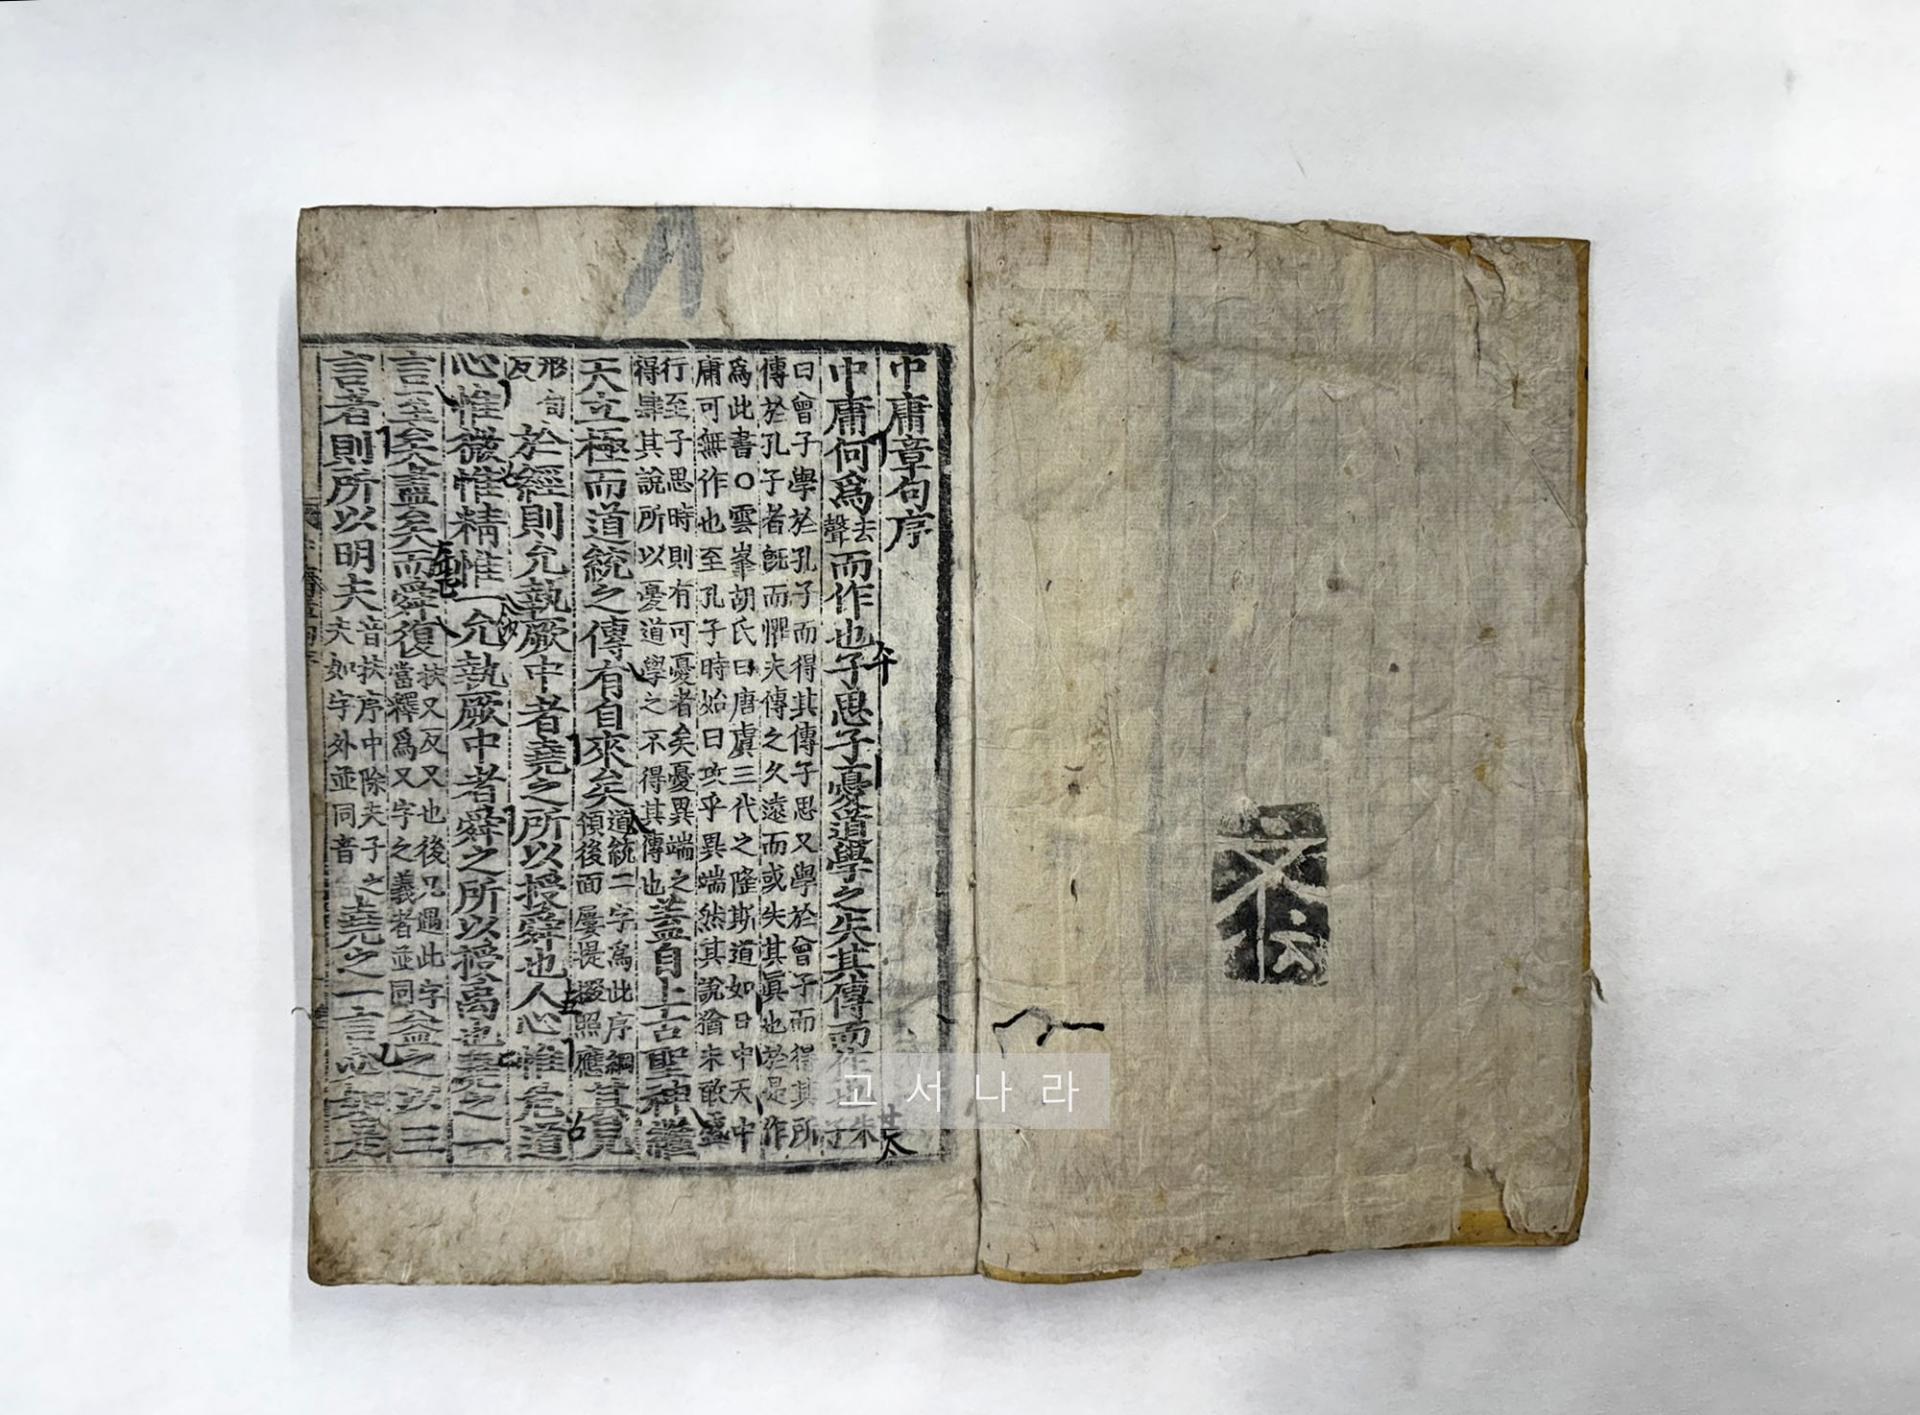 中庸章句序
中庸何爲去聲而作也子思子憂道學之失其傳而作也朱子
曰曾子學於孔子而得其傳子思又學於曾子而得其所
傳於孔子者旣而懼夫傳之久遠而或失其眞也於是作
爲此書○雲峯胡氏曰唐虞三代之隆斯道如日中天中
庸可無作也至孔子時始曰攻乎異端然其說猶未敢盛
行至子思時則有可憂者矣憂異端之
得肆其說所以憂道學之不得其傳也蓋自上古聖神繼
天立極而道統之傳有自來矣道統二字爲此序綱
領後面屢提掇照應其見
形甸
反於經則允執厥中者堯之所以授舜也人心惟危道
心惟微惟精惟一允執厥中者舜之所以授禹也堯之一
言至矣盡矣而舜復扶又反又也後凡遇此字
當釋爲又字之義者並同益之以三
言者則所以明夫音扶序中除夫子之
夫如字外並同音堯之一言必如是
고서나라